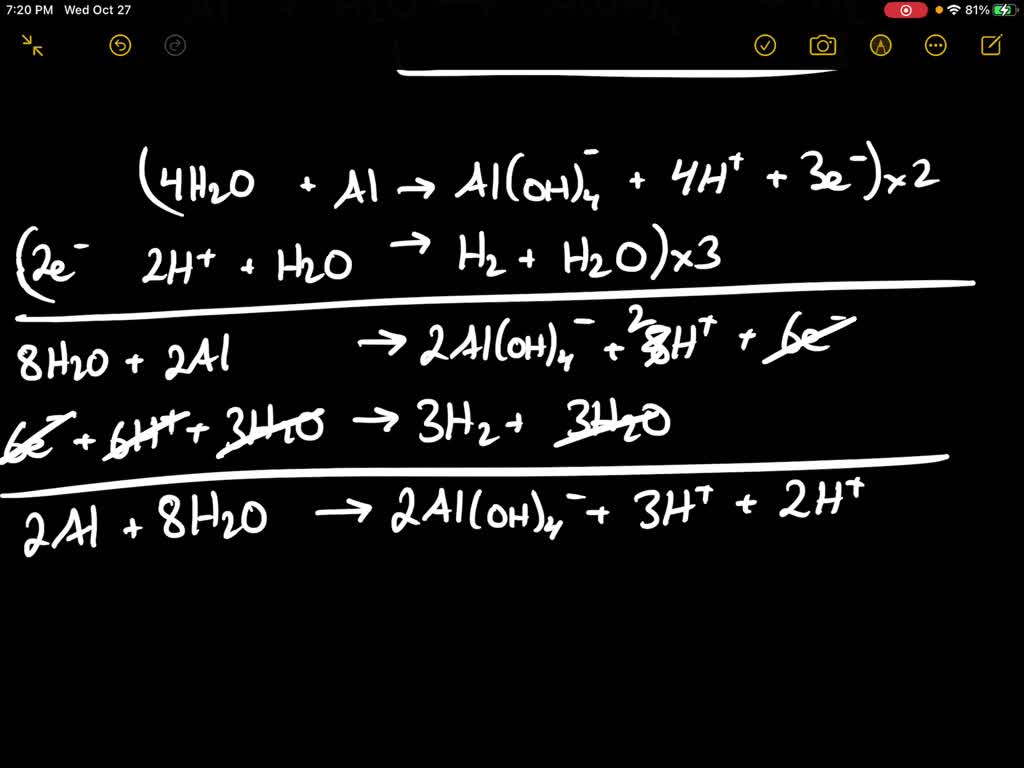 7:20 PM Wed Oct 27 81%
(4H₂O + Al → Al(OH)₄⁻ + 4H⁺ + 3e⁻)×2
(2e⁻ 2H⁺ + H₂O → H₂ + H₂O)×3
8H₂O + 2Al → 2Al(OH)₄⁻ + 2 8H⁺ + 6e⁻
6e⁻ + 6H⁺ + 3H₂O → 3H₂ + 3H₂O
2Al + 8H₂O → 2Al(OH)₄⁻ + 3H⁺ + 2H⁺